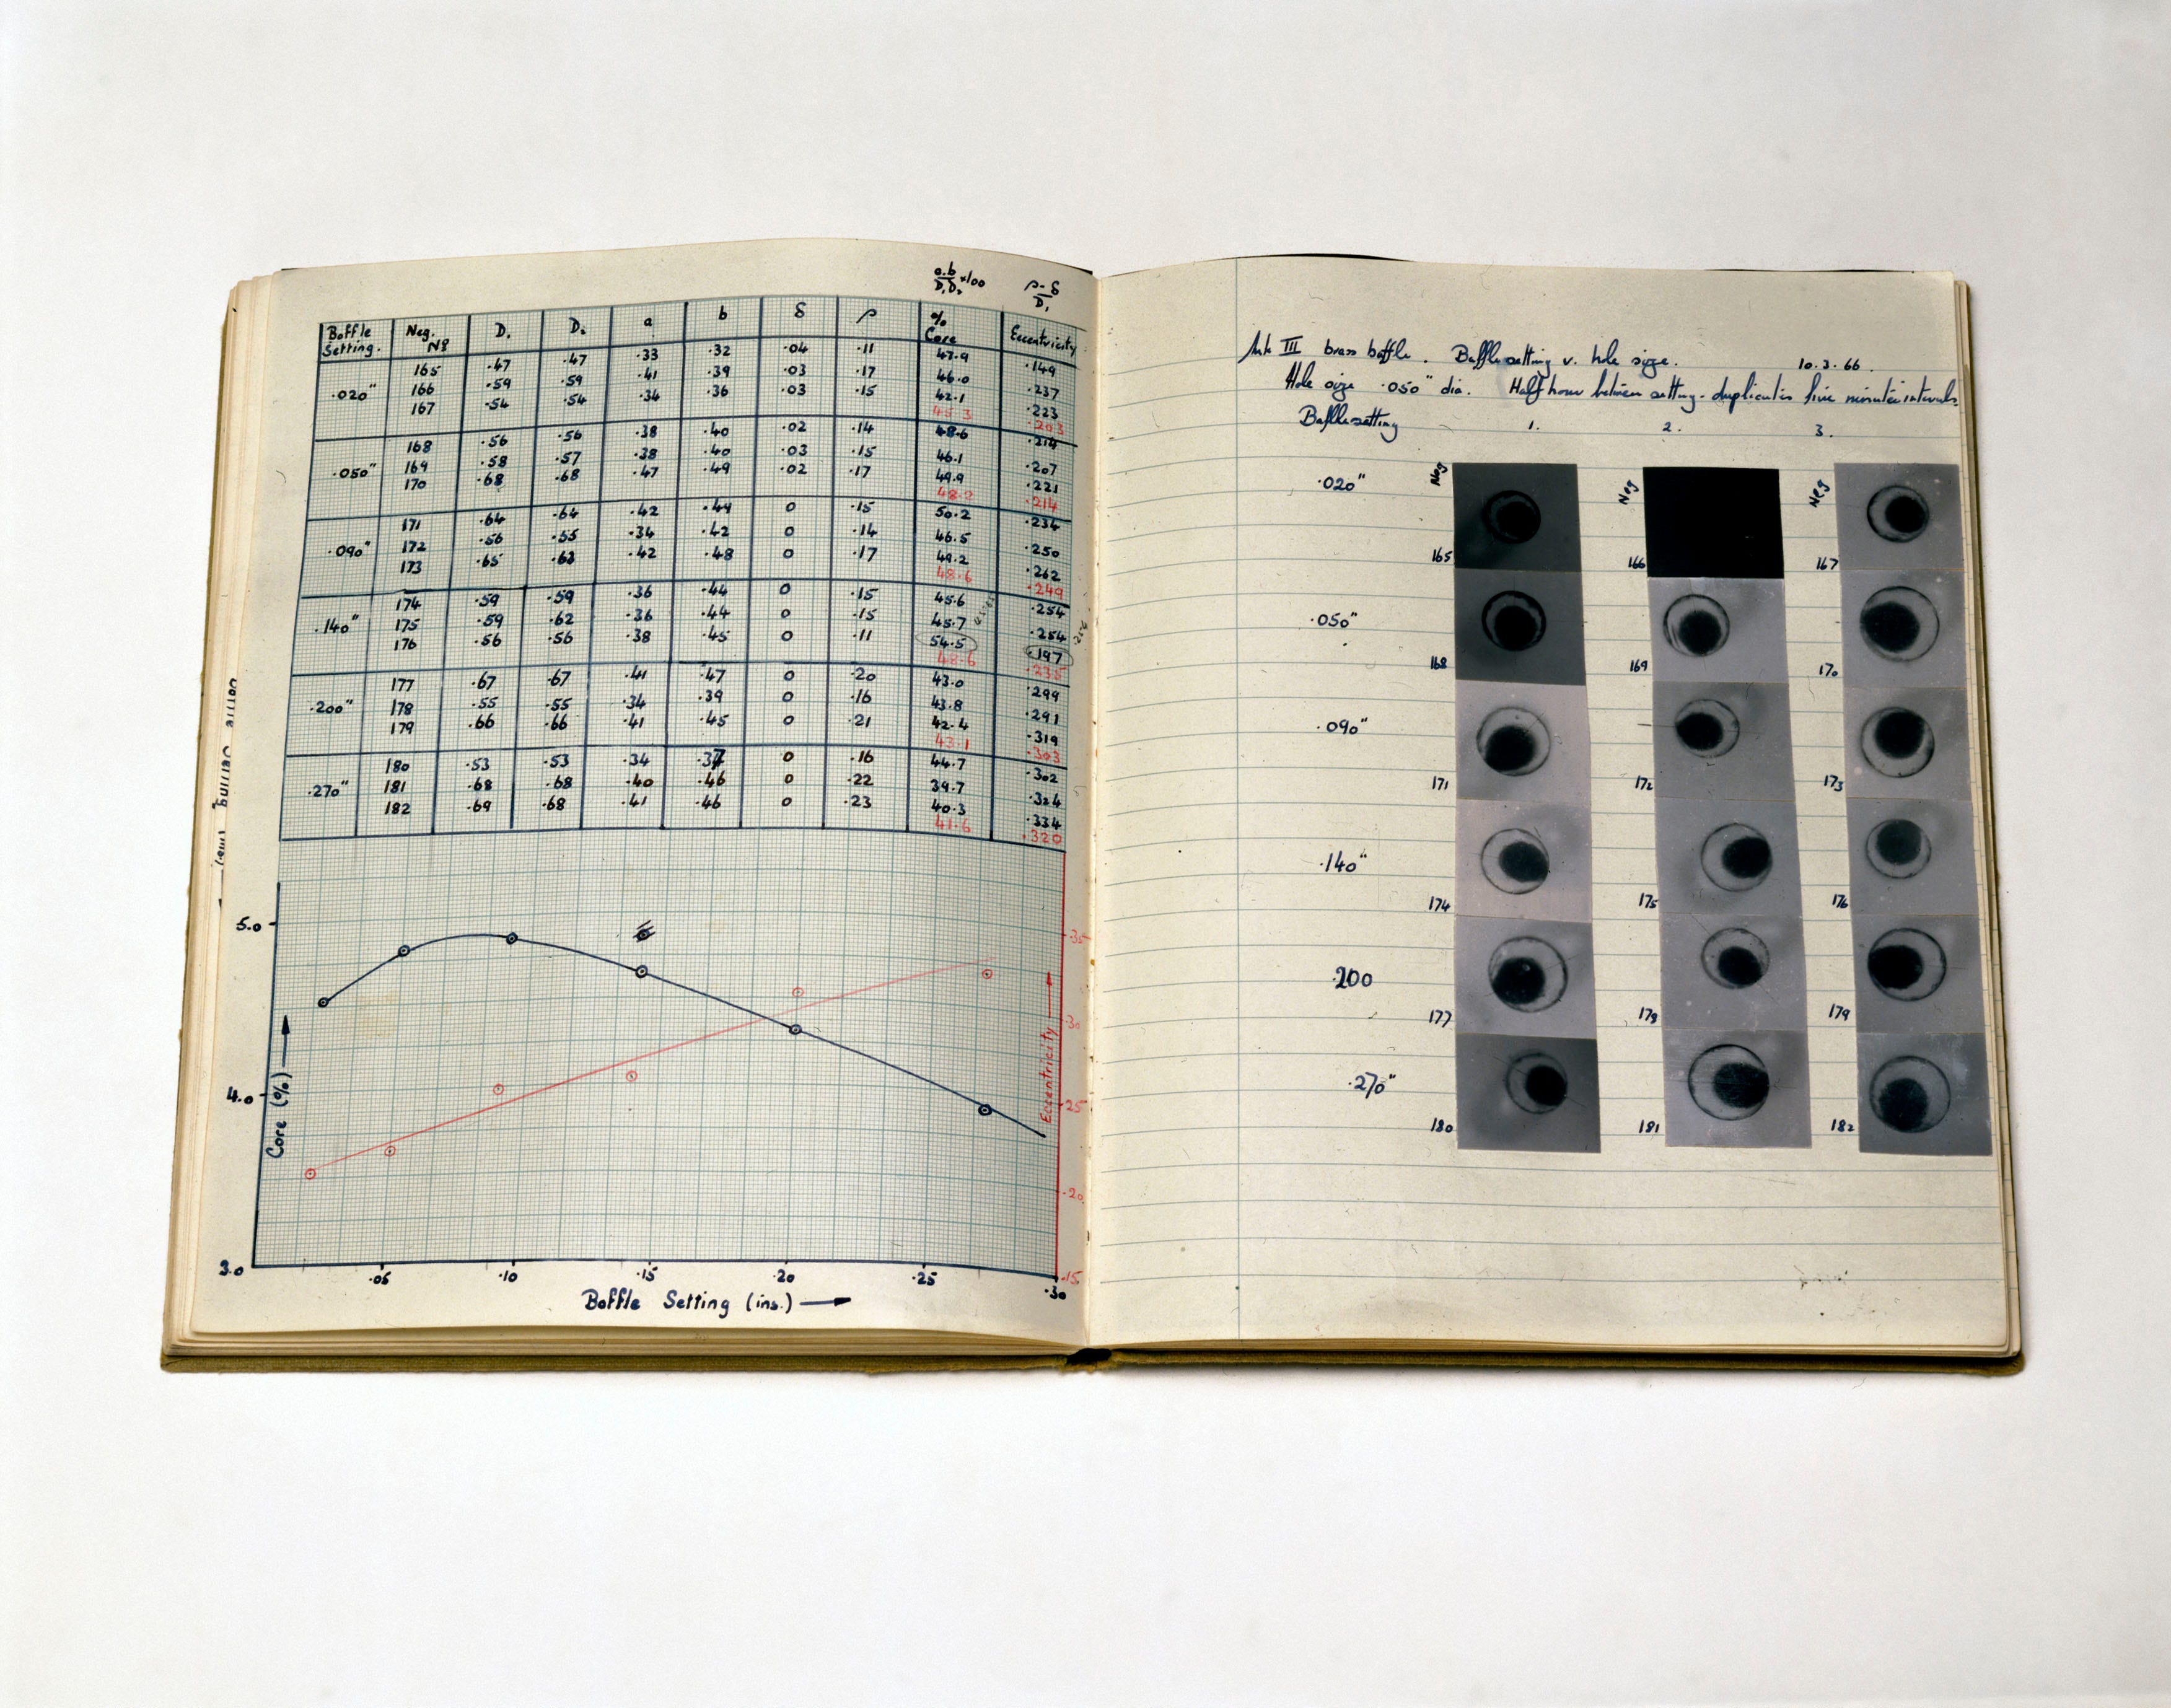 a.b/D₁D₂ ×100 ρ-δ/D₁
Baffle Setting. Neg. Nº D₁ D₂ a b δ ρ % Core Eccentricity
.020" 165 .47 .47 .33 .32 .04 .11 47.9 .149
166 .59 .59 .41 .39 .03 .17 46.0 .237
167 .54 .54 .34 .36 .03 .15 42.1 .223
45.3 .203
.050" 168 .56 .56 .38 .40 .02 .14 48.6 .214
169 .58 .57 .38 .40 .03 .15 46.1 .207
170 .68 .68 .47 .49 .02 .17 49.9 .221
48.2 .214
.090" 171 .64 .64 .42 .49 0 .15 50.2 .234
172 .56 .55 .34 .42 0 .14 46.5 .250
173 .65 .63 .42 .48 0 .17 49.2 .262
48.6 .249
.140" 174 .59 .59 .36 .44 0 .15 45.6 .254
175 .59 .62 .36 .44 0 .15 45.7 .254
176 .56 .56 .38 .45 0 .11 54.5 .197
48.6 .235
.200" 177 .67 .67 .41 .47 0 .20 43.0 .299
178 .55 .55 .34 .39 0 .16 43.8 .291
179 .66 .66 .41 .45 0 .21 42.4 .319
43.1 .303
.270" 180 .53 .53 .34 .37 0 .16 44.7 .302
181 .68 .68 .40 .46 0 .22 39.7 .324
182 .69 .68 .41 .46 0 .23 40.3 .334
41.6 .320
5.0
4.0
3.0
Core (%)
.35
.30
.25
.20
.15
Eccentricity
.05 .10 .15 .20 .25 .30
Baffle Setting (ins.)
Mk III brass baffle. Baffle setting v. hole size. 10.3.66.
Hole size .050" dia. Half hour between setting - duplicates five minutes intervals.
Baffle setting 1. 2. 3.
Neg Neg Neg
.020" 165 166 167
.050" 168 169 170
.090" 171 172 173
.140" 174 175 176
.200 177 178 179
.270" 180 181 182